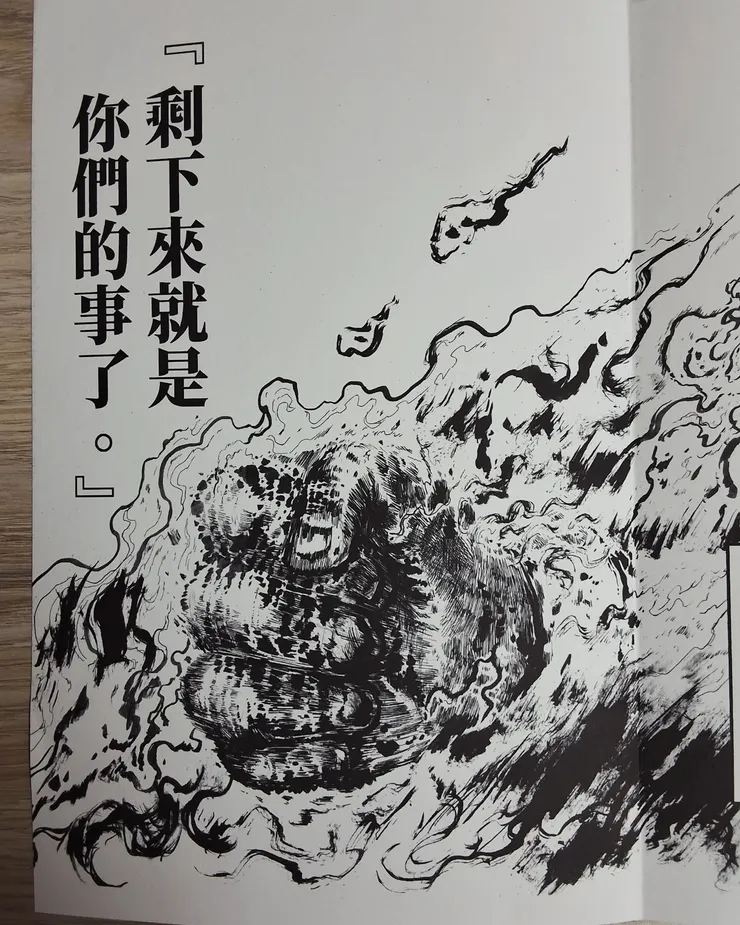 『剩下來就是
你們的事了。』